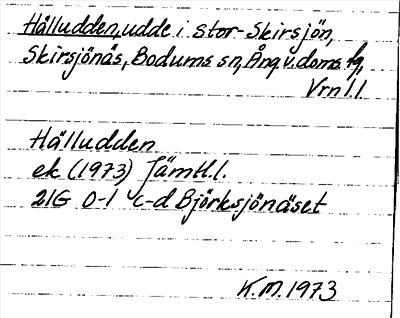 Hålludden, udde i Stor-Skirsjön,
Skirsjönäs, Bodums sn, Ång. v. doms. fg,
Vrn l. l
Hålludden
ek (1973) Jämtl. l.
21G 0-1 c-d Björksjönäset
K.M. 1973